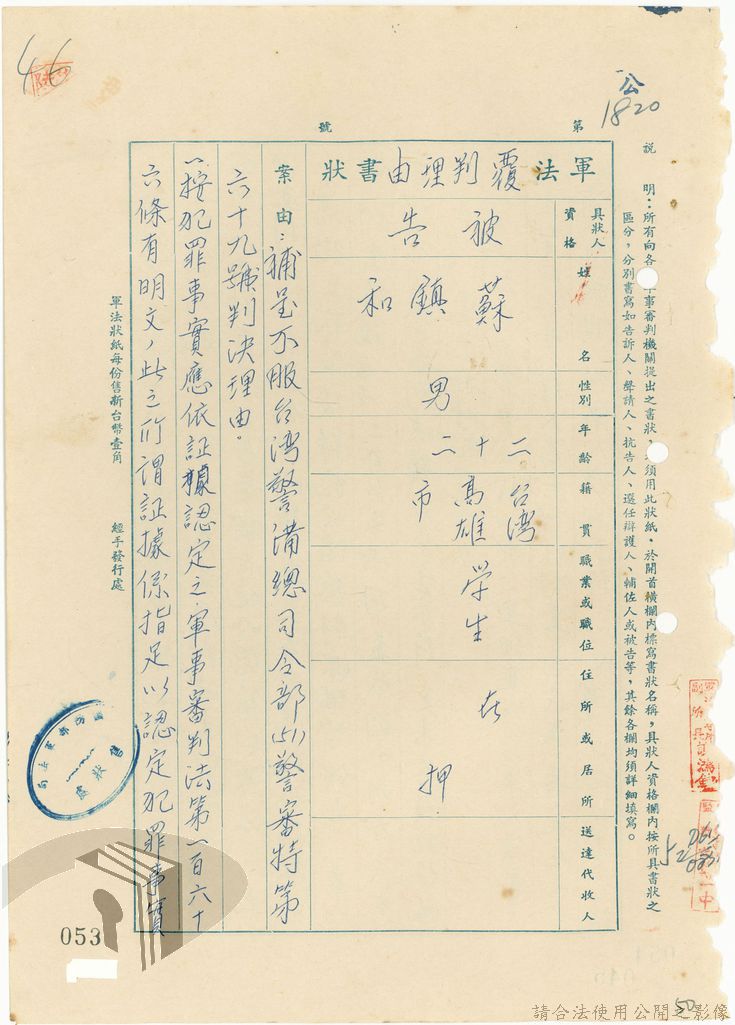 46
公
1820
第
號
說明:所有向各軍事審判機關提出之書狀,須用此狀紙,於開首橫欄內標寫書狀名稱,具狀人資格欄內按所具書狀之
區分,分別書寫如告訴人、聲請人、抗告人、選任辯護人、輔佐人或被告等,其餘各欄均須詳細填寫。
軍法覆判理由書狀
具狀人資格
被告
姓名
蘇鎮和
性別
男
年齡
二十二
籍貫
台湾高雄市
職業或職位
学生
住所或居所
在押
送達代收人
案由:補呈不服台湾警备總司令部(51)警審特第
六十九號判决理由。
一按犯罪事實應依証據認定之軍事審判法第一百六十
六條有明文,此之所謂証據係指足以認定犯罪事實
軍法狀紙每份售新台幣壹角
經手發行處
053
50
請合法使用公開之影像